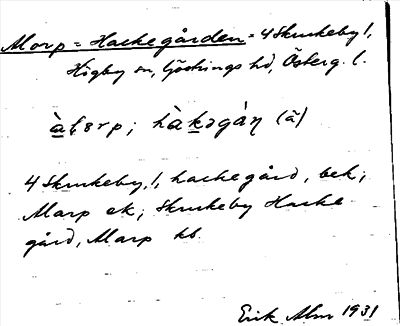 Marp = Hackegården = 4 Skrukeby /,
Högby sn, Göstrings hd, Österg. l.
hàkǝgàṇ (ā)
4 Skrukeby, /, hackegård, bek;
Marp ek; Skrukeby Hacke
gård, Marp kb.
Erik Alm 1931